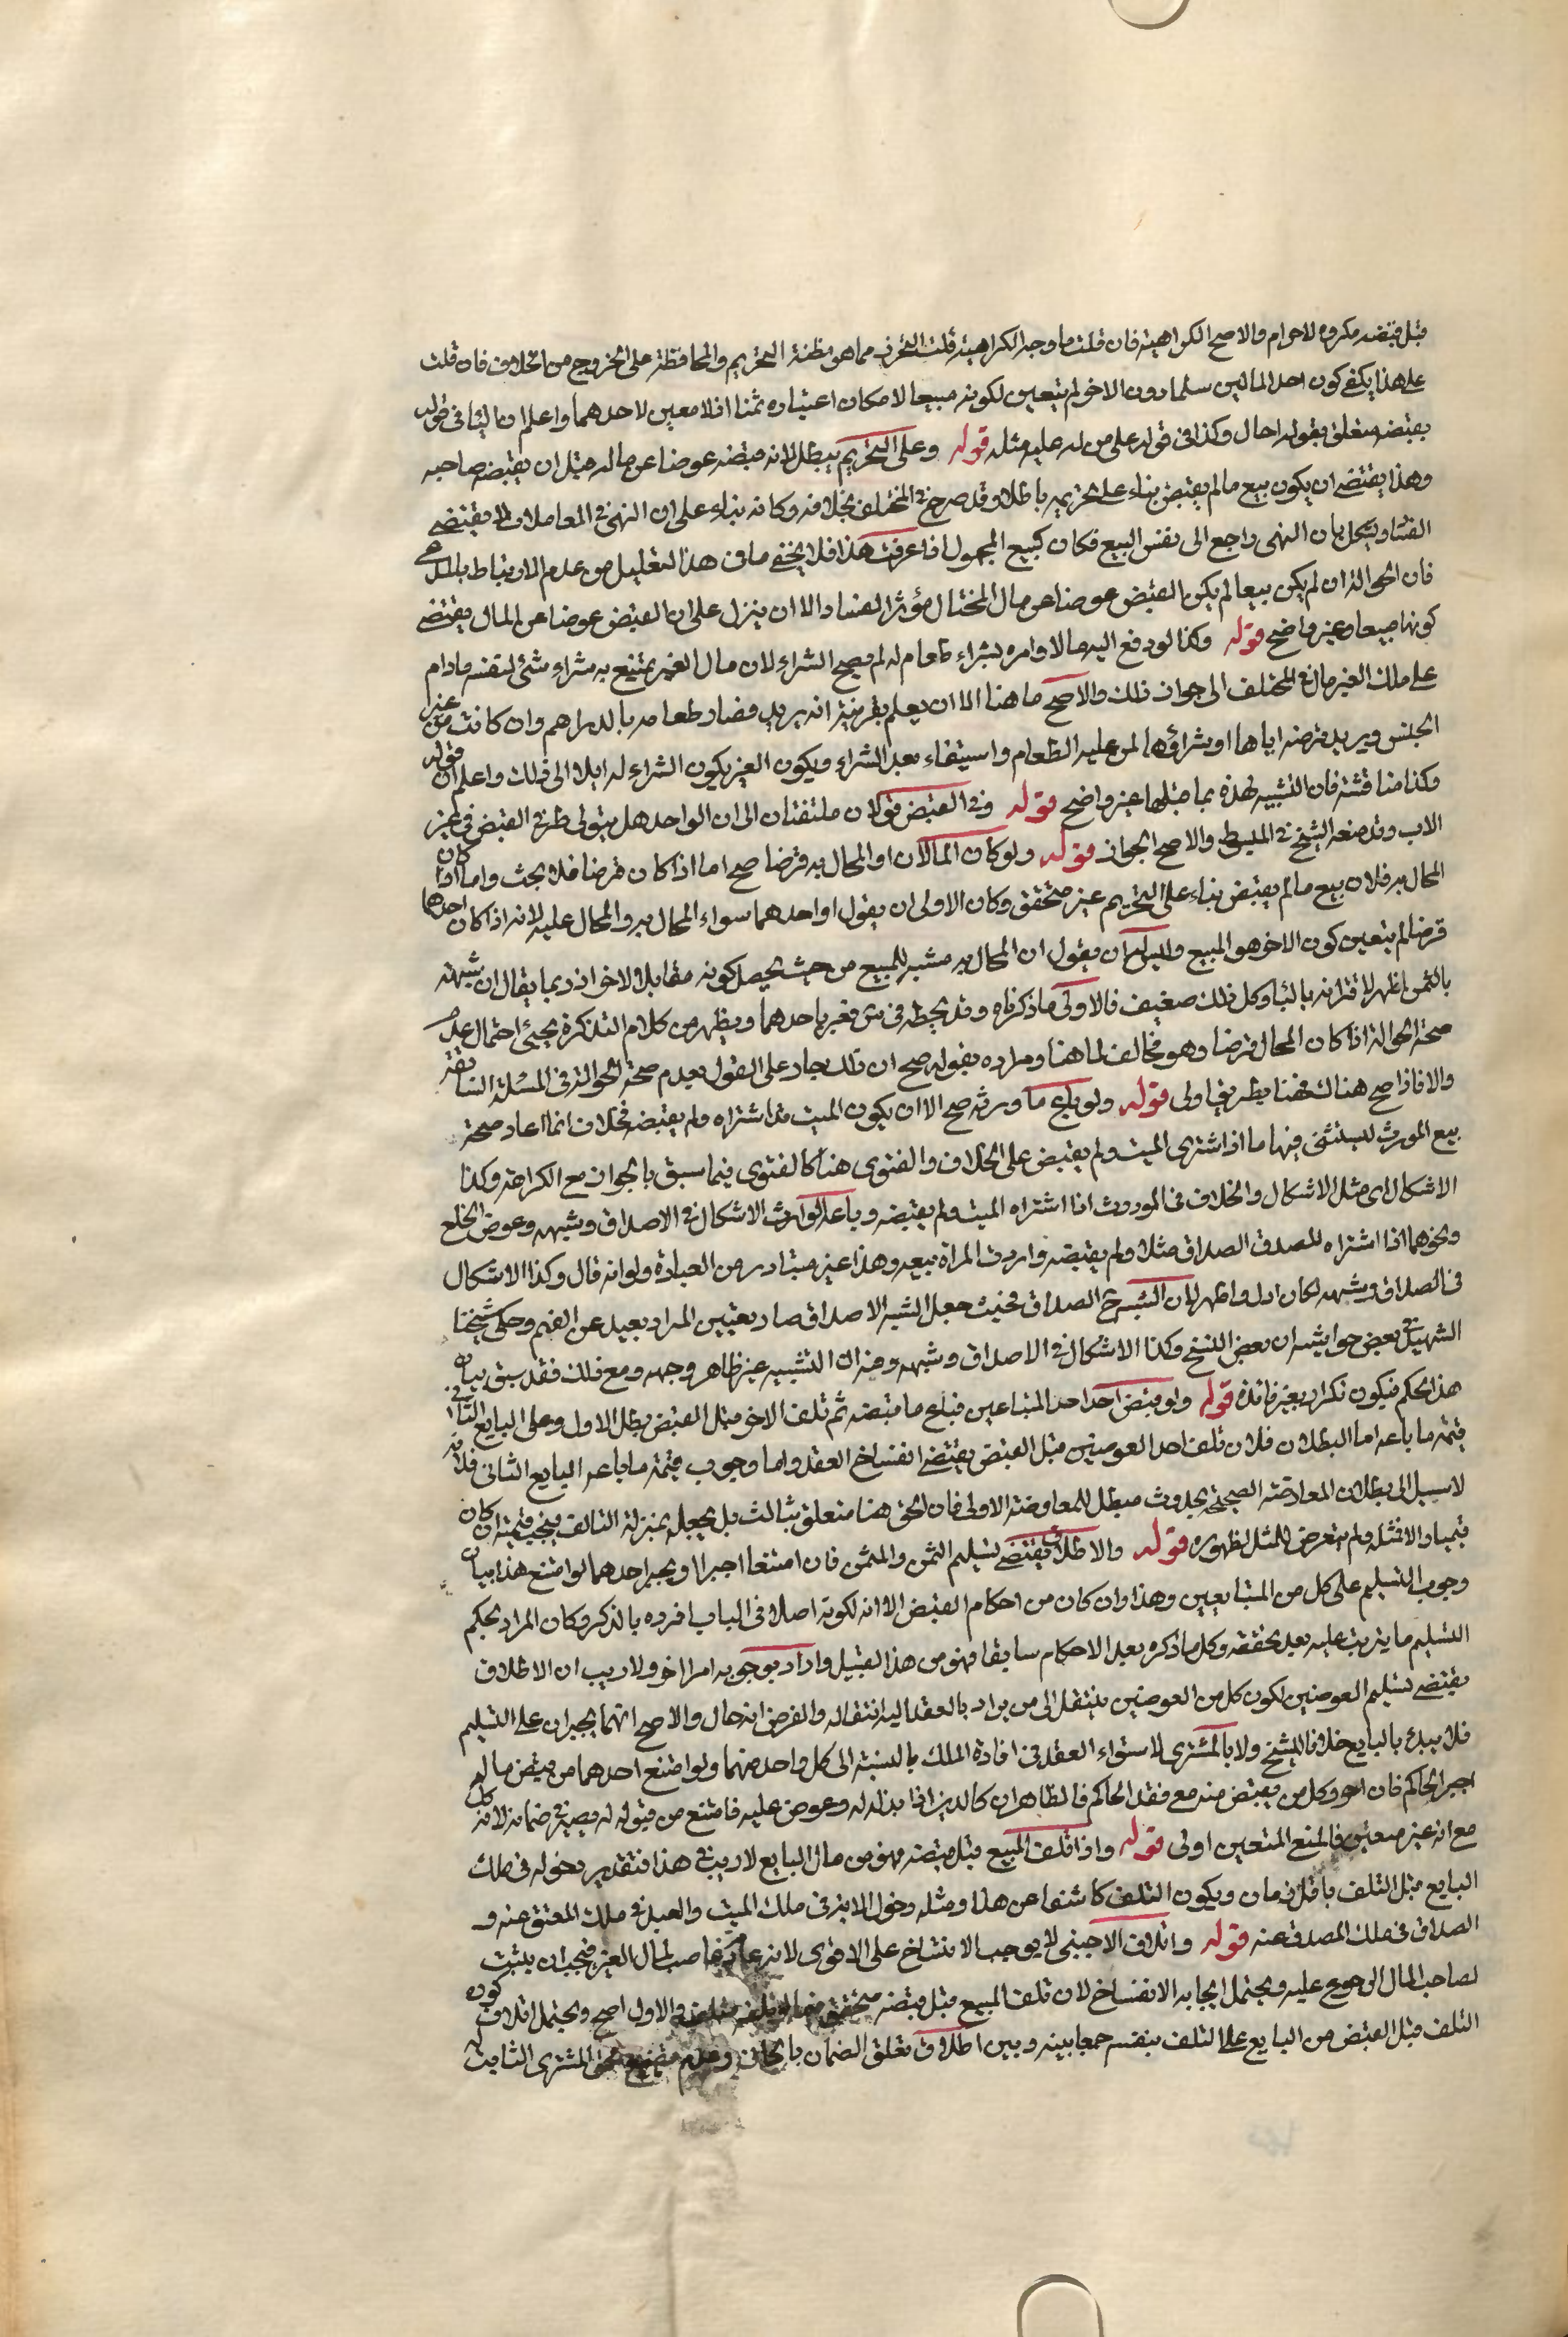 قبل قبضه مكروه لا حرام والاصح الكراهية فان قلت ما وجه الكراهية قلت التحرز مما هو مظنة التحريم والمحافظة على الخروج من الخلاف فان قلت
على هذا يكفي كون احد المالين سلما دون الاخر لم يتعين لكونه مبيعا لامكان اعتباره ثمنا اذ لا معين لاحدهما واعلم ان البا في قوله
بقبضه متعلق بقوله احال وكذا في قوله على من له عليه مثله قوله وعلى التحريم يبطل لانه قبضه عوضا عن ماله قبل ان يقبضه صاحبه
وهذا يقتضي ان يكون بيع ما لم يقبض بناء على تحريمه باطلا وقد صرح في المختلف بخلافه وكانه بناء على ان النهي في المعاملات لا يقتضي
الفساد ويشكل بان النهي راجع الى نفس البيع فكان كبيع المجهول اذا عرفت هذا فلا يخفى ما في هذا التعليل من عدم الارتباط بالمدعى
فان الحوالة ان لم يكن بيعا لم يكن القبض عوضا عن مال المحتال مؤثر الفساد الا ان ينزل على ان القبض عوضا عن المال يقتضي
كونها مبيعا وغير واضح قوله وكذا لو دفع اليه مالا وامره بشراء طعام له لم يصح الشراء لان مال الغير يمتنع به شراء شئ لنفسه مادام
على ملك الغير مال في المختلف الى جواز ذلك والاصح ما هنا الا ان يعلم بقرينة انه يريد قضاء طعامه بالدراهم وان كانت من غير
الجنس ويريد قرضه اياها او شراؤها لمن عليه الطعام واستيفاء بعد الشراء ويكون الغير يكون الشراء له ايلا الى ذلك واعلم ان قوله
وكذا مناقشة فان التشبيه لهذه بما قبلها غير واضح قوله وفي القبض قولان ملتفتان الى ان الواحد هل يتولى طرفي القبض في غير
الاب وقد منعه الشيخ في المبسوط والاصح الجواز قوله ولو كان المالان او المحال به قرضا صح اما اذا كان قرضا فلا بحث واما اذا كان
المحال به فلان بيع ما لم يقبض بناء على التحريم غير متحقق وكان الاولى ان يقول او احدهما سواء المحال به والمحال عليه لانه اذا كان احدهما
قرضا لم يتعين كون الاخر هو المبيع وليس له ان يقول ان المحال به مشبه للمبيع من حيث يحصل كونه مقابلا الاخر اذ ربما يقال ان شبهه
بالثمن اظهر لاقترانه بالبا وكل ذلك ضعيف فالاولى ما ذكرناه وقد بخطه في ش فغير باحدهما ويظهر من كلام التذكرة يجئ احتمال عدم
صحة الحوالة اذا كان المحال قرضا وهو مخالف لما هنا ومراده بقوله صح ان ذلك جار على القول بعدم صحة الحوالة في المسئلة السابقة
والا فاذا صح هناك فهنا بطريق اولى قوله ولو باع ما ورثه صح الا ان يكون الميت قد اشتراه ولم يقبضه فخلاف انما اعاد صحة
بيع المورث ليستثنى منها ما اذا اشترى الميت ولم يقبض على الخلاف والفتوى هنا كالفتوى فيما سبق بالجواز مع الكراهة وكذا
الاشكال اي مثل الاشكال والخلاف في الموروث اذا اشتراه الميت ولم يقبضه وباعه الوارث الاشكال في الاصداق وشبهه وعوض الخلع
ونحوهما اذا اشتراه المصدق الصداق مثلا ولم يقبضه وارادت المراة بيعه وهذا غير متبادر من العبارة ولو انه قال وكذا الاشكال
في الصداق وشبهه لكان ادل واظهر لان الشبه مع الصداق فحيث جعل الشبه الاصداق صار تعيين المراد بعيد عن الفهم وحكى شيخنا
الشهيد في بعض حواشيه ان بعض النسخ وكذا الاشكال في الاصداق وشبهه وفيه ان التشبيه غير ظاهر وجهه ومع ذلك فقد سبق بيان
هذا الحكم فيكون تكرار بغير فائدة قوله ولو قبض احد احد المتباعين فباع ما قبضه ثم تلف الاخر قبل القبض بطل الاول وعلى البايع الثاني
قيمة ما باعه اما البطلان فلان تلف احد العوضين قبل القبض يقتضي انفساخ العقد واما وجوب قيمة ما باعه البايع الثاني فلانه
لا سبيل الى بطلان المعاوضة الصحيحة بحدوث مبطل للمعاوضة الاولى فان الحق هنا متعلق بثالث بل يجعل بمنزلة التالف فيجب قيمته ان كان
قيميا والا فمثله ولم يتعرض للمثل لظهوره قوله والاطلاق يقتضي تسليم الثمن والمثمن فان امتنعا اجبرا ويجبر احدهما لو امتنع هذا بيان
وجوب التسليم على كل من المتبايعين وهذا وان كان من احكام القبض الا انه لكونه اصلا في الباب افرده بالذكر وكان المراد بحكم
التسليم ما يترتب عليه بعد تحققه وكل ما ذكره بعد الاحكام سابقا فهو من هذا القبيل واراد بوجوبه امرا اخر ولا ريب ان الاطلاق
يقتضي تسليم العوضين لكون كل من العوضين ينتقل الى من يراد بالعقد اليه انتقاله والفرض انه حال والاصح انهما يجبران على التسليم
فلا يبدئ بالبايع خلافا للشيخ ولا بالمشترى لاستواء العقد في افادة الملك بالنسبة الى كل واحد منهما ولو امتنع احدهما من قبض ماله
اجبر الحاكم فان اصر وكل من يقبض منه مع فقد الحاكم فالظاهر ان كالدين اذا بذله له وعرض عليه فامتنع من قبوله له يصير في ضمانه لانه كل
مع انه غير متعين فالمنع المتعين اولى قوله واذا تلف المبيع قبل قبضه فهو من مال البايع لا ريب في هذا فتقدير دخوله في ملك
البايع قبل التلف باقل زمان ويكون التلف كاشفا عن هذا ومثله دخول الابن في ملك الميت والعبد في ملك المعتق عنه و
الصداق في ملك المصدق عنه قوله واتلاف الاجنبي لا يوجب الانفساخ على الاقوى لانه غاصب لمال الغير فيجب ان يثبت
لصاحب المال الرجوع عليه ويحتمل ايجابه الانفساخ لان تلف المبيع قبل قبضه متحقق والاول اصح ويحتمل اتلاف كون
التلف قبل القبض من البايع على التلف بنفسه جمعا بينه وبين اطلاق تعلق الضمان بالجاني وعدم تضييع حق المشترى الثابت